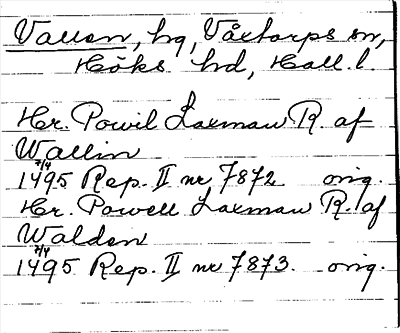 Vallen, hg, Våxtorps sn,
Höks hd, Hall. l.
Hr. Powil Laxman R. af
Wallin
7/4
1495 Rep. II nr 7872 orig.
Hr. Powell Laxman R. af
Walden
7/4
1495 Rep. II nr 7873. orig.